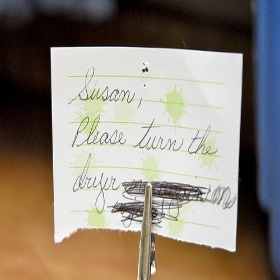 Susan,
Please turn the
dryer on